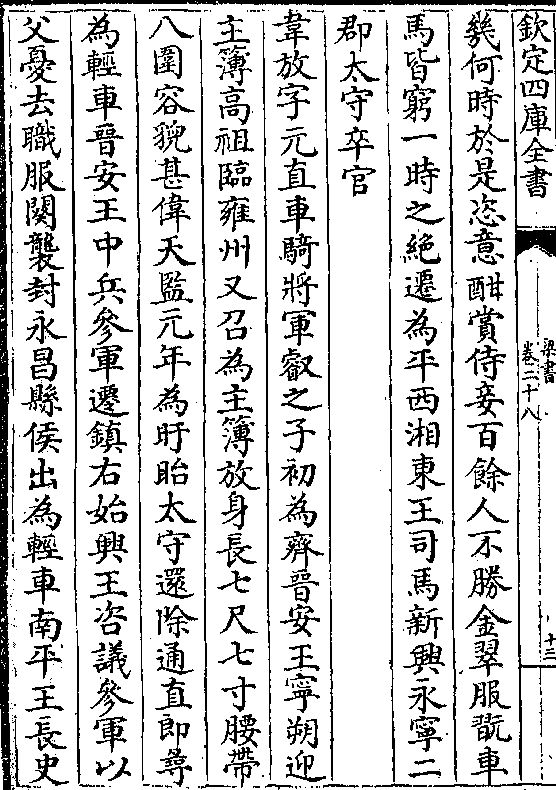 欽定四庫全書
梁書
卷二十八
十三
幾何時於是恣意酣賞侍妾百餘人不勝金翠服翫車
馬皆窮一時之絶遷為平西湘東王司馬新興永寧二
郡太守卒官
韋放字元直車騎將軍叡之子初為齊晉安王寧朔迎
主簿髙祖臨雍州又召為主簿放身長七尺七寸腰帶
八圍容貌甚偉天監元年為盱眙太守還除通直郎尋
為輕車晉安王中兵參軍遷鎮右始興王咨議參軍以
父憂去職服闋襲封永昌縣侯出為輕車南平王長史